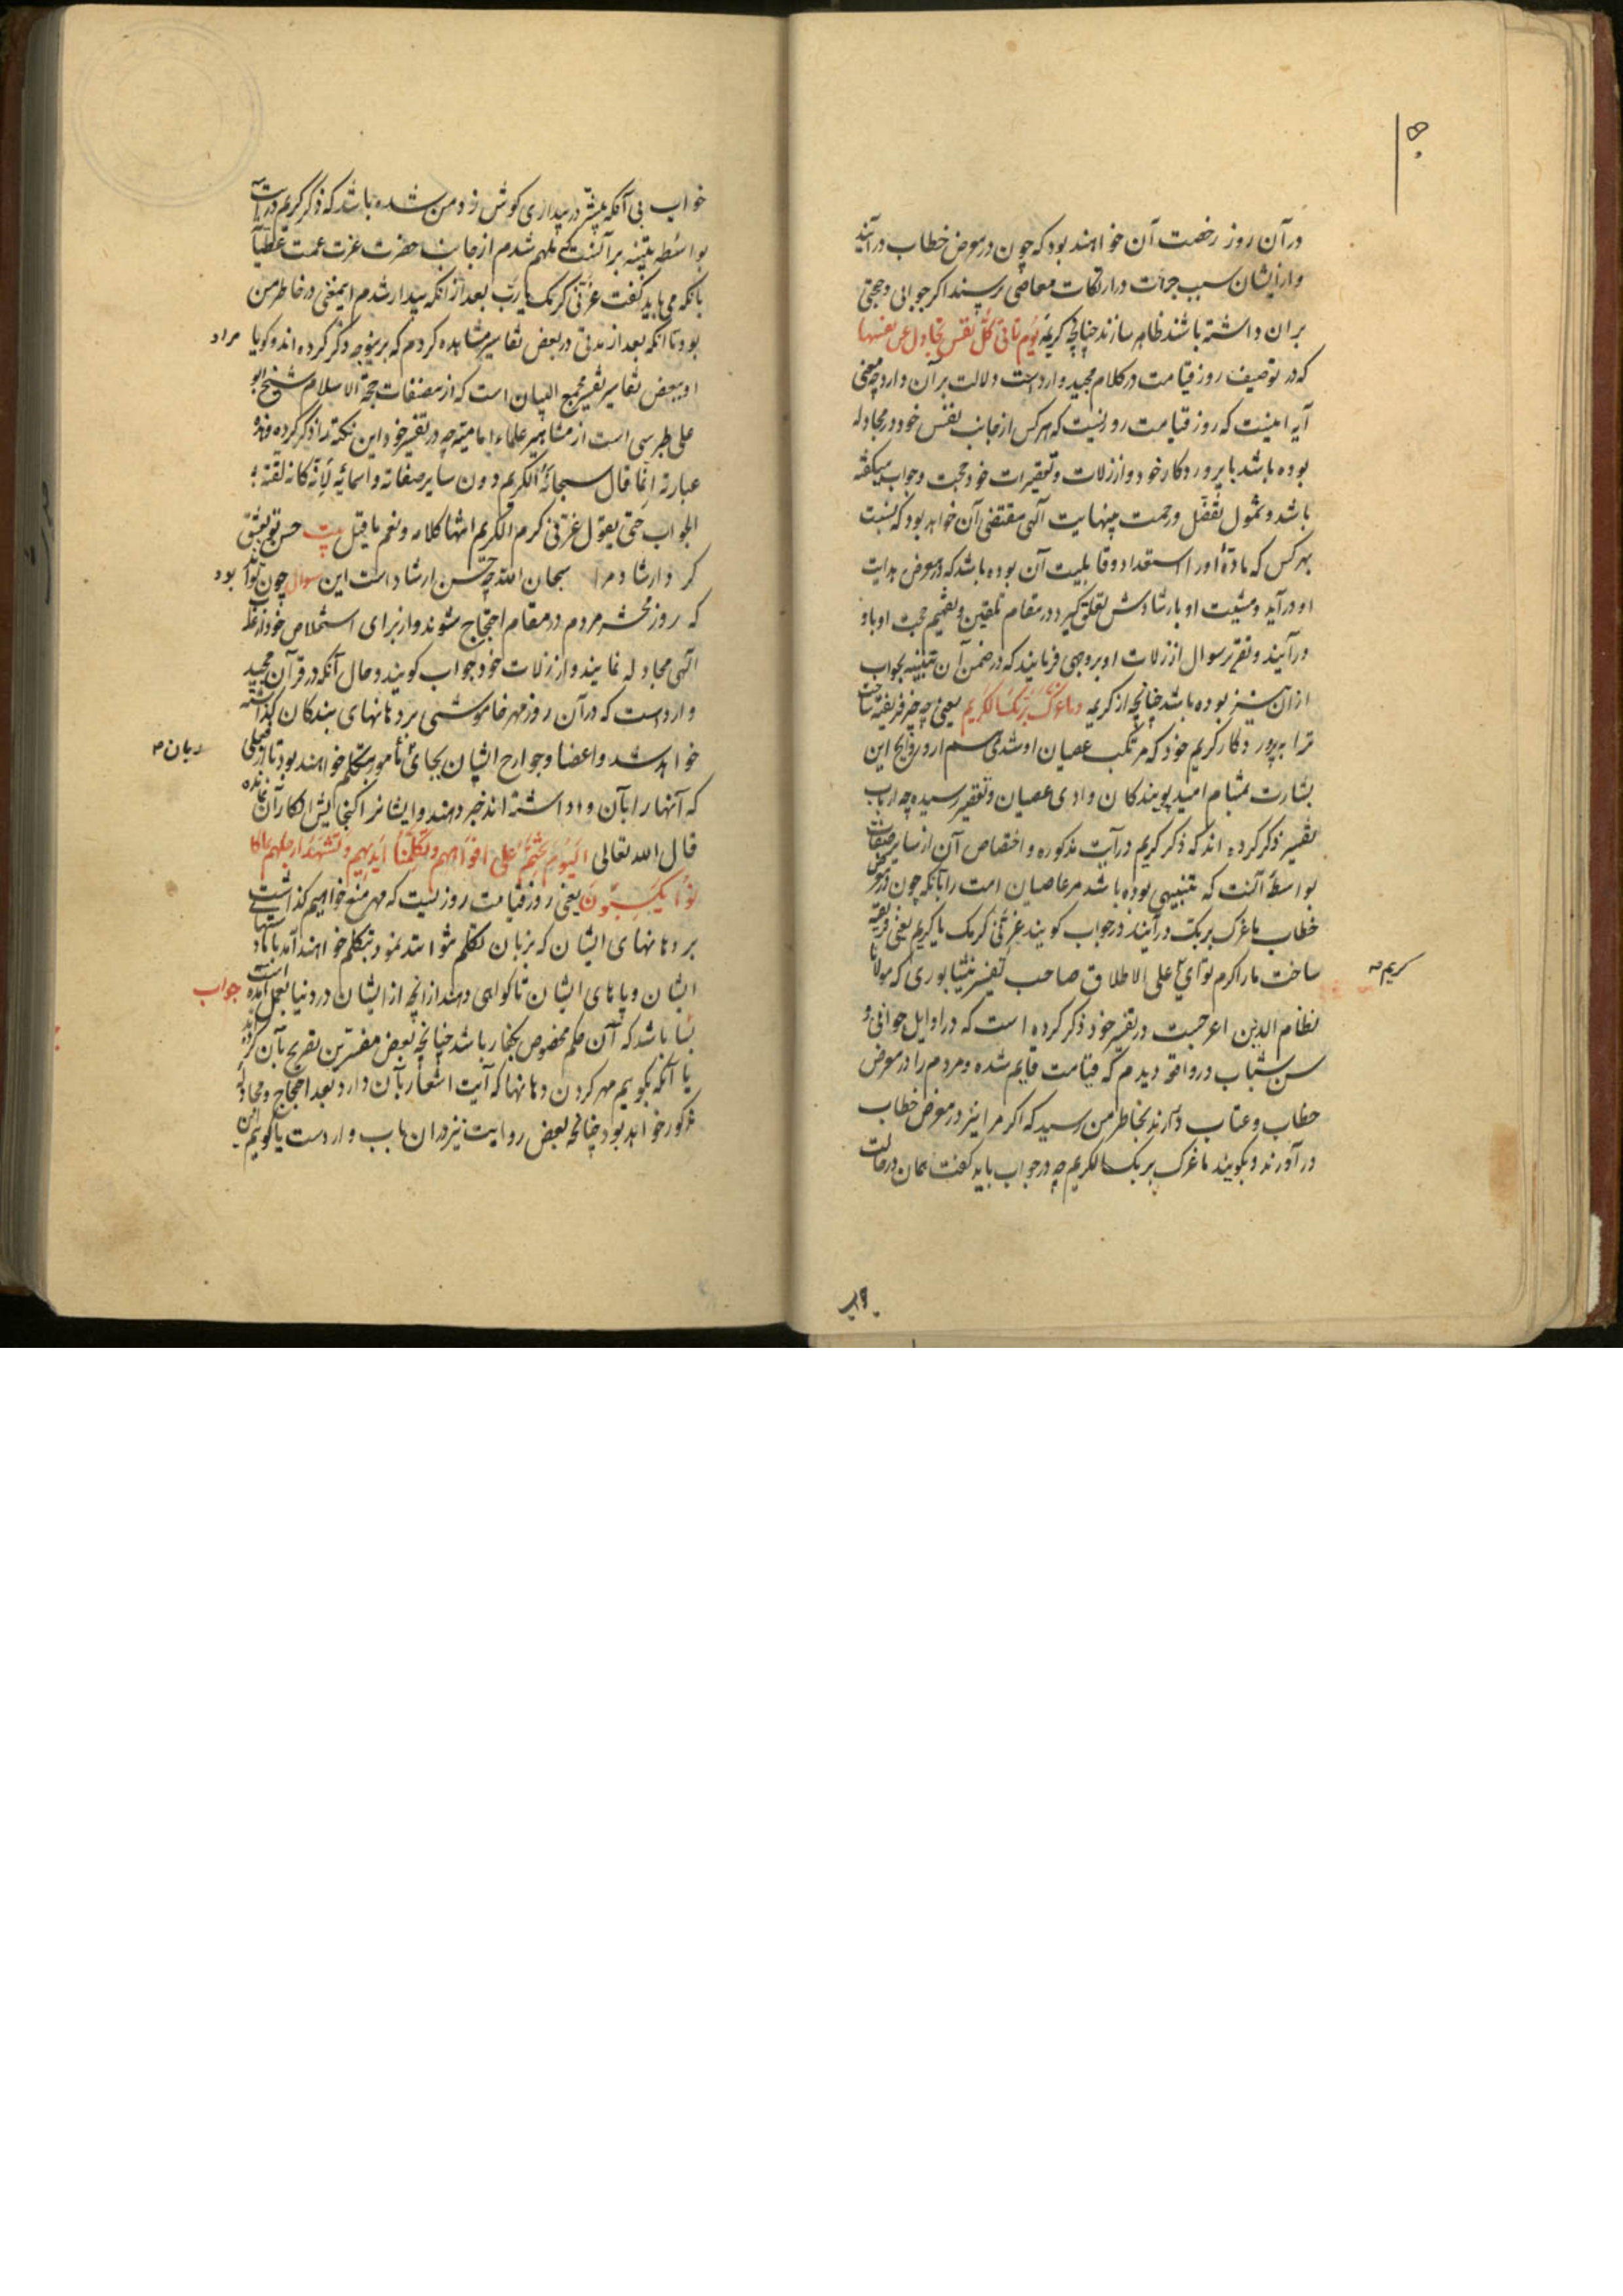 در آن روز رخصت آن خواهند بود که چون در معرض خطاب در آیند
و از ایشان سبب جرات در ارتکاب معاصی پرسند اگر جوابی و حجتی
بر ان داشته باشند ظاهر سازند چنانچه کریمه یوم تاتی کل نفس تجادل عن نفسها
که در توصیف روز قیامت در کلام مجید وارد است دلالت بر آن دارد چه معنی
آیه اینست که روز قیامت روزیست که هر کس از جانب نفس خود در مجادله
بوده باشد با پروردکار خود و از زلات و تقصیرات خود حجت و جواب میکفته
باشد و شمول تفضل و رحمت بینهایت آلهی مقتضی آن خواهد بود که نسبت
بهر کس که ماده او را استعداد و قابلیت آن بوده باشد که در معرض هدایت
او در آید و مشیت او بارشادش تعلق کیرد در مقام تلقین و تفهیم حجت او باو
در آیند و تقریر سوال از زلات او بروجهی فرمایند که در ضمن آن تنبیه بجواب
از آن نیز بوده باشد چنانچه از کریمه ما غرک بربک الکریم یعنی چه چیز فریفته ساخت
ترا به پروردکار کریم خود که مرتکب عصیان او شدی روایح این
بشارت بمشام امید پویندکان وادی عصیان و تقصیر رسیده چه ارباب
تفسیر ذکر کرده اند که ذکر کریم در آیت مذکوره و اختصاص آن از سایر صفات
بواسطه آنست که تنبیهی بوده باشد مر عاصیان امت را بآنکه چون در معرض
خطاب ما غرک بربک در آیند در جواب کویند غرنی کرمک یا کریم یعنی فریفته
ساخت ما را کرم تو ای علی الاطلاق صاحب تفسیر نیشابوری که مولانا
کریم
نظام الدین اعرجست در تفسیر خود ذکر کرده است که در اوایل جوانی و
سن شباب در واقعه دیدم که قیامت قایم شده و مردم را در معرض
خطاب و عتاب در آرند بخاطر من رسید که اکر مرا نیز در معرض خطاب
در آورند و بکویند ما غرک بربک الکریم چه در جواب باید کفت همان در حالت
خواب بی آنکه پیشتر در بیداری کوش زد من شده باشد که ذکر کریم در آیت
بواسطه تنبیه بر آنست ملهم شدم از جانب حضرت عزت عمت عطیاته
بانکه می باید کفت غرنی کرمک یا رب بعد از انکه بیدار شدم اینمعنی در خاطر من
بود تا انکه بعد از مدتی در بعض تفاسیر مشاهده کردم که برینوجه ذکر کرده اند و کویا
مراد
او ببعض تفاسیر تفسیر مجمع البیان است که از مصنفات حجة الاسلام شیخ ابو
علی طبرسی است از مشاهیر علماء امامیه چه در تفسیر خود این نکته را ذکر کرده و هذه
عبارته انما قال سبحانه الکریم دون سایر صفاته و اسمائه لانه کانه لقنه
الجواب حتی یقول غرنی کرم الکریم انتها کلامه و نعم ما قیل بیت حسن تو بعشق
کرد ارشاد مرا سبحان الله چه حسن ارشاد است این سوال چون تواند
بود
که روز محشر مردم در مقام احتجاج شوند و از برای استخلاص خود از
الهی مجادله نمایند و از زلات خود جواب کویند و حال آنکه در قرآن مجید
وارد است که در آن روز مهر خاموشی بر دهانهای بندکان کذاشته
خواهد شد و اعضا و جوارح ایشان بجای مامور بتکلم خواهند بود تا از
زبان
که آنها را بآن واداشته اند خبر دهند و ایشانرا کنجایش انکار آن نمانده
قال الله تعالی الیوم نختم علی افواههم و تکلمنا ایدیهم و تشهد ارجلهم بما کا
نوا یکسبون یعنی روز قیامت روزیست که مهر منع خواهیم کذاشت
بر دهانهای ایشان که بزبان تکلم نتوانند نمود و بتکلم خواهند آمد با ما دستهای
ایشان و پاهای ایشان تا کواهی دهند از انچه از ایشان در دنیا بعمل آمده است
جواب
بسا باشد که آن حکم مخصوص بکفار باشد چنانچه بعض مفسرین تصریح بآن کرده اند
یا آنکه بکویم مهر کردن دهانها که آیت اشعار بآن دارد بعد احتجاج و مجادله
مذکور خواهد بود چنانچه بعض روایت نیز در ان باب وارد است یا کویم